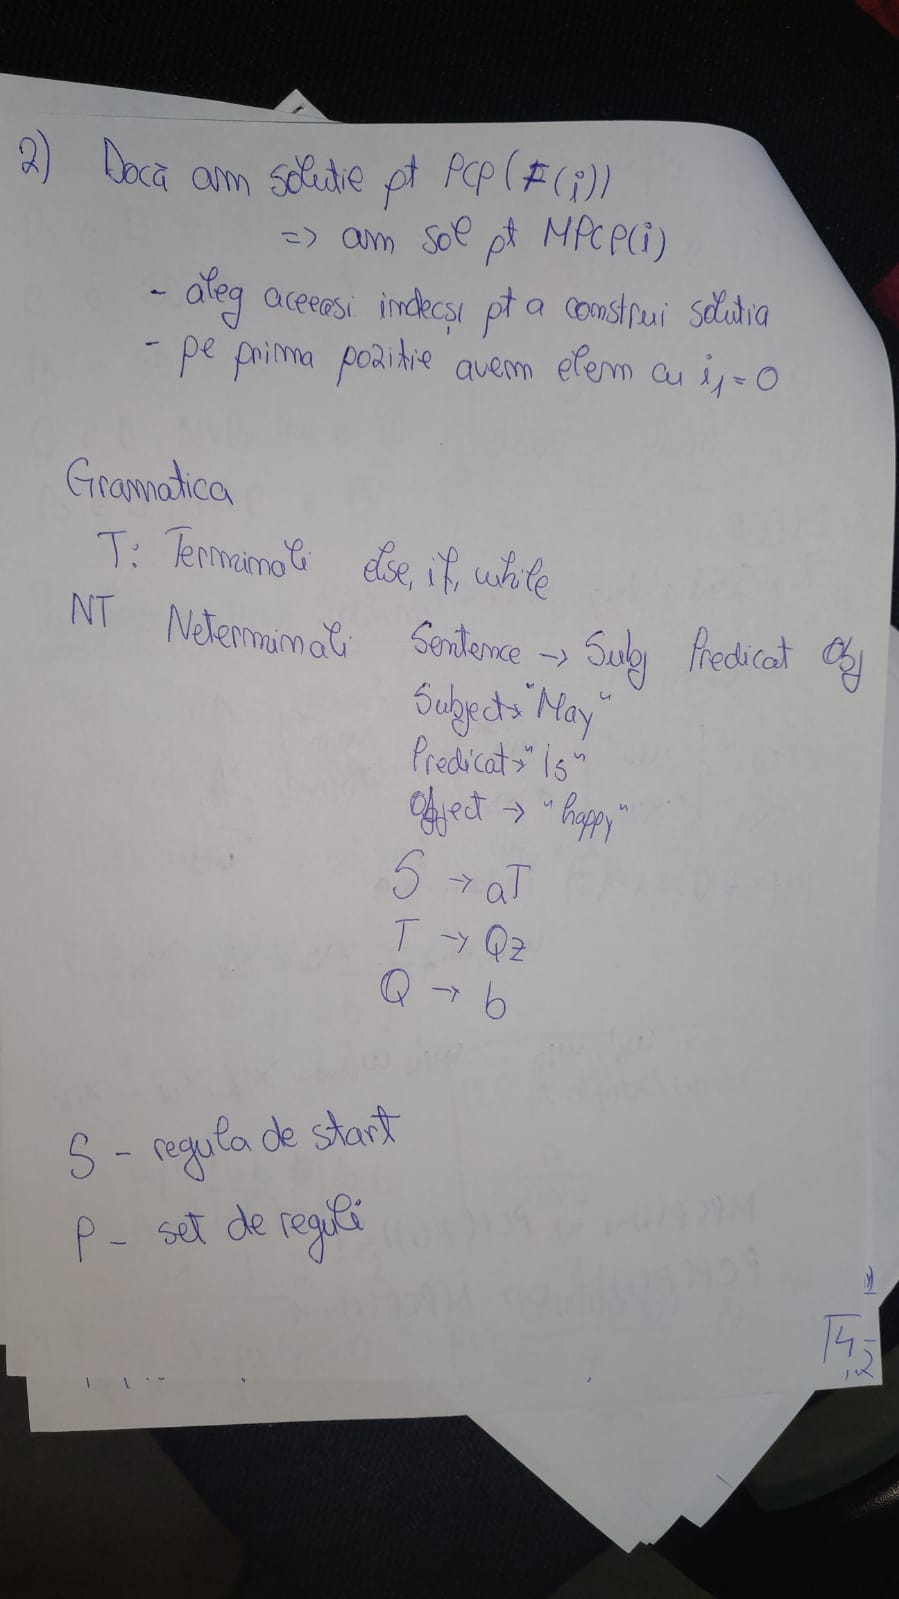 2) Dacă am solutie pt PCP(F(i))
=> am sol pt MPCP(i)
- aleg aceeasi indecși pt a construi solutia
- pe prima pozitie avem elem cu i1 = 0
Gramatica
T: Terminali else, if, while
NT Neterminali Sentence -> Subj Predicat Obj
Subject -> "May"
Predicat -> "is"
Object -> "happy"
S -> aT
T -> Qz
Q -> b
S - regula de start
P - set de reguli